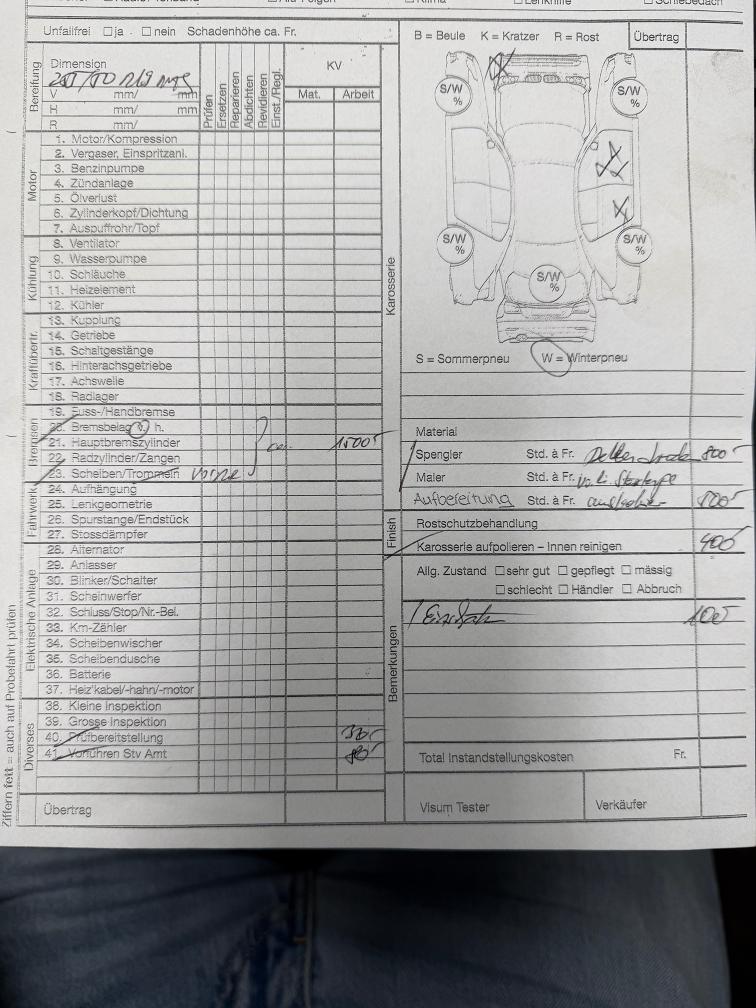 Klima
Lenkhilfe
Schiebedach
Unfallfrei ☐ ja . ☐ nein Schadenhöhe ca. Fr.
Bereifung
Dimension
V mm/ mm
H mm/ mm
R mm/
Prüfen
Ersetzen
Reparieren
Abdichten
Revidieren
Einst./Regl.
KV
Mat. Arbeit
Motor
1. Motor/Kompression
2. Vergaser, Einspritzanl.
3. Benzinpumpe
4. Zündanlage
5. Ölverlust
6. Zylinderkopf/Dichtung
7. Auspuffrohr/Topf
Kühlung
8. Ventilator
9. Wasserpumpe
10. Schläuche
11. Heizelement
12. Kühler
Kraftübertr.
13. Kupplung
14. Getriebe
15. Schaltgestänge
16. Hinterachsgetriebe
17. Achswelle
18. Radlager
Bremsen
19. Fuss-/Handbremse
20. Bremsbelag v. h.
21. Hauptbremszylinder 1500
22. Radzylinder/Zangen
23. Scheiben/Trommeln vorne
Fahrwerk
24. Aufhängung
25. Lenkgeometrie
26. Spurstange/Endstück
27. Stossdämpfer
Elektrische Anlage
28. Alternator
29. Anlasser
30. Blinker/Schalter
31. Scheinwerfer
32. Schluss/Stop/Nr.-Bel.
33. Km-Zähler
34. Scheibenwischer
35. Scheibendusche
36. Batterie
37. Heiz'kabel/-hahn/-motor
Diverses
38. Kleine Inspektion
39. Grosse Inspektion
40. Prüfbereitstellung
41. Vorführen Stv Amt
Übertrag
Ziffern fett = auch auf Probefahrt prüfen
B = Beule K = Kratzer R = Rost Übertrag
Karosserie
S/W %
S/W %
S/W %
S/W %
S/W %
S = Sommerpneu W = Winterpneu
Material
Spengler Std. à Fr. 800
Maler Std. à Fr.
Aufbereitung Std. à Fr.
Finish
Rostschutzbehandlung
Karosserie aufpolieren – Innen reinigen 400
Allg. Zustand ☐ sehr gut ☐ gepflegt ☐ mässig
☐ schlecht ☐ Händler ☐ Abbruch
Bemerkungen
100
Total Instandstellungskosten Fr.
Visum Tester Verkäufer